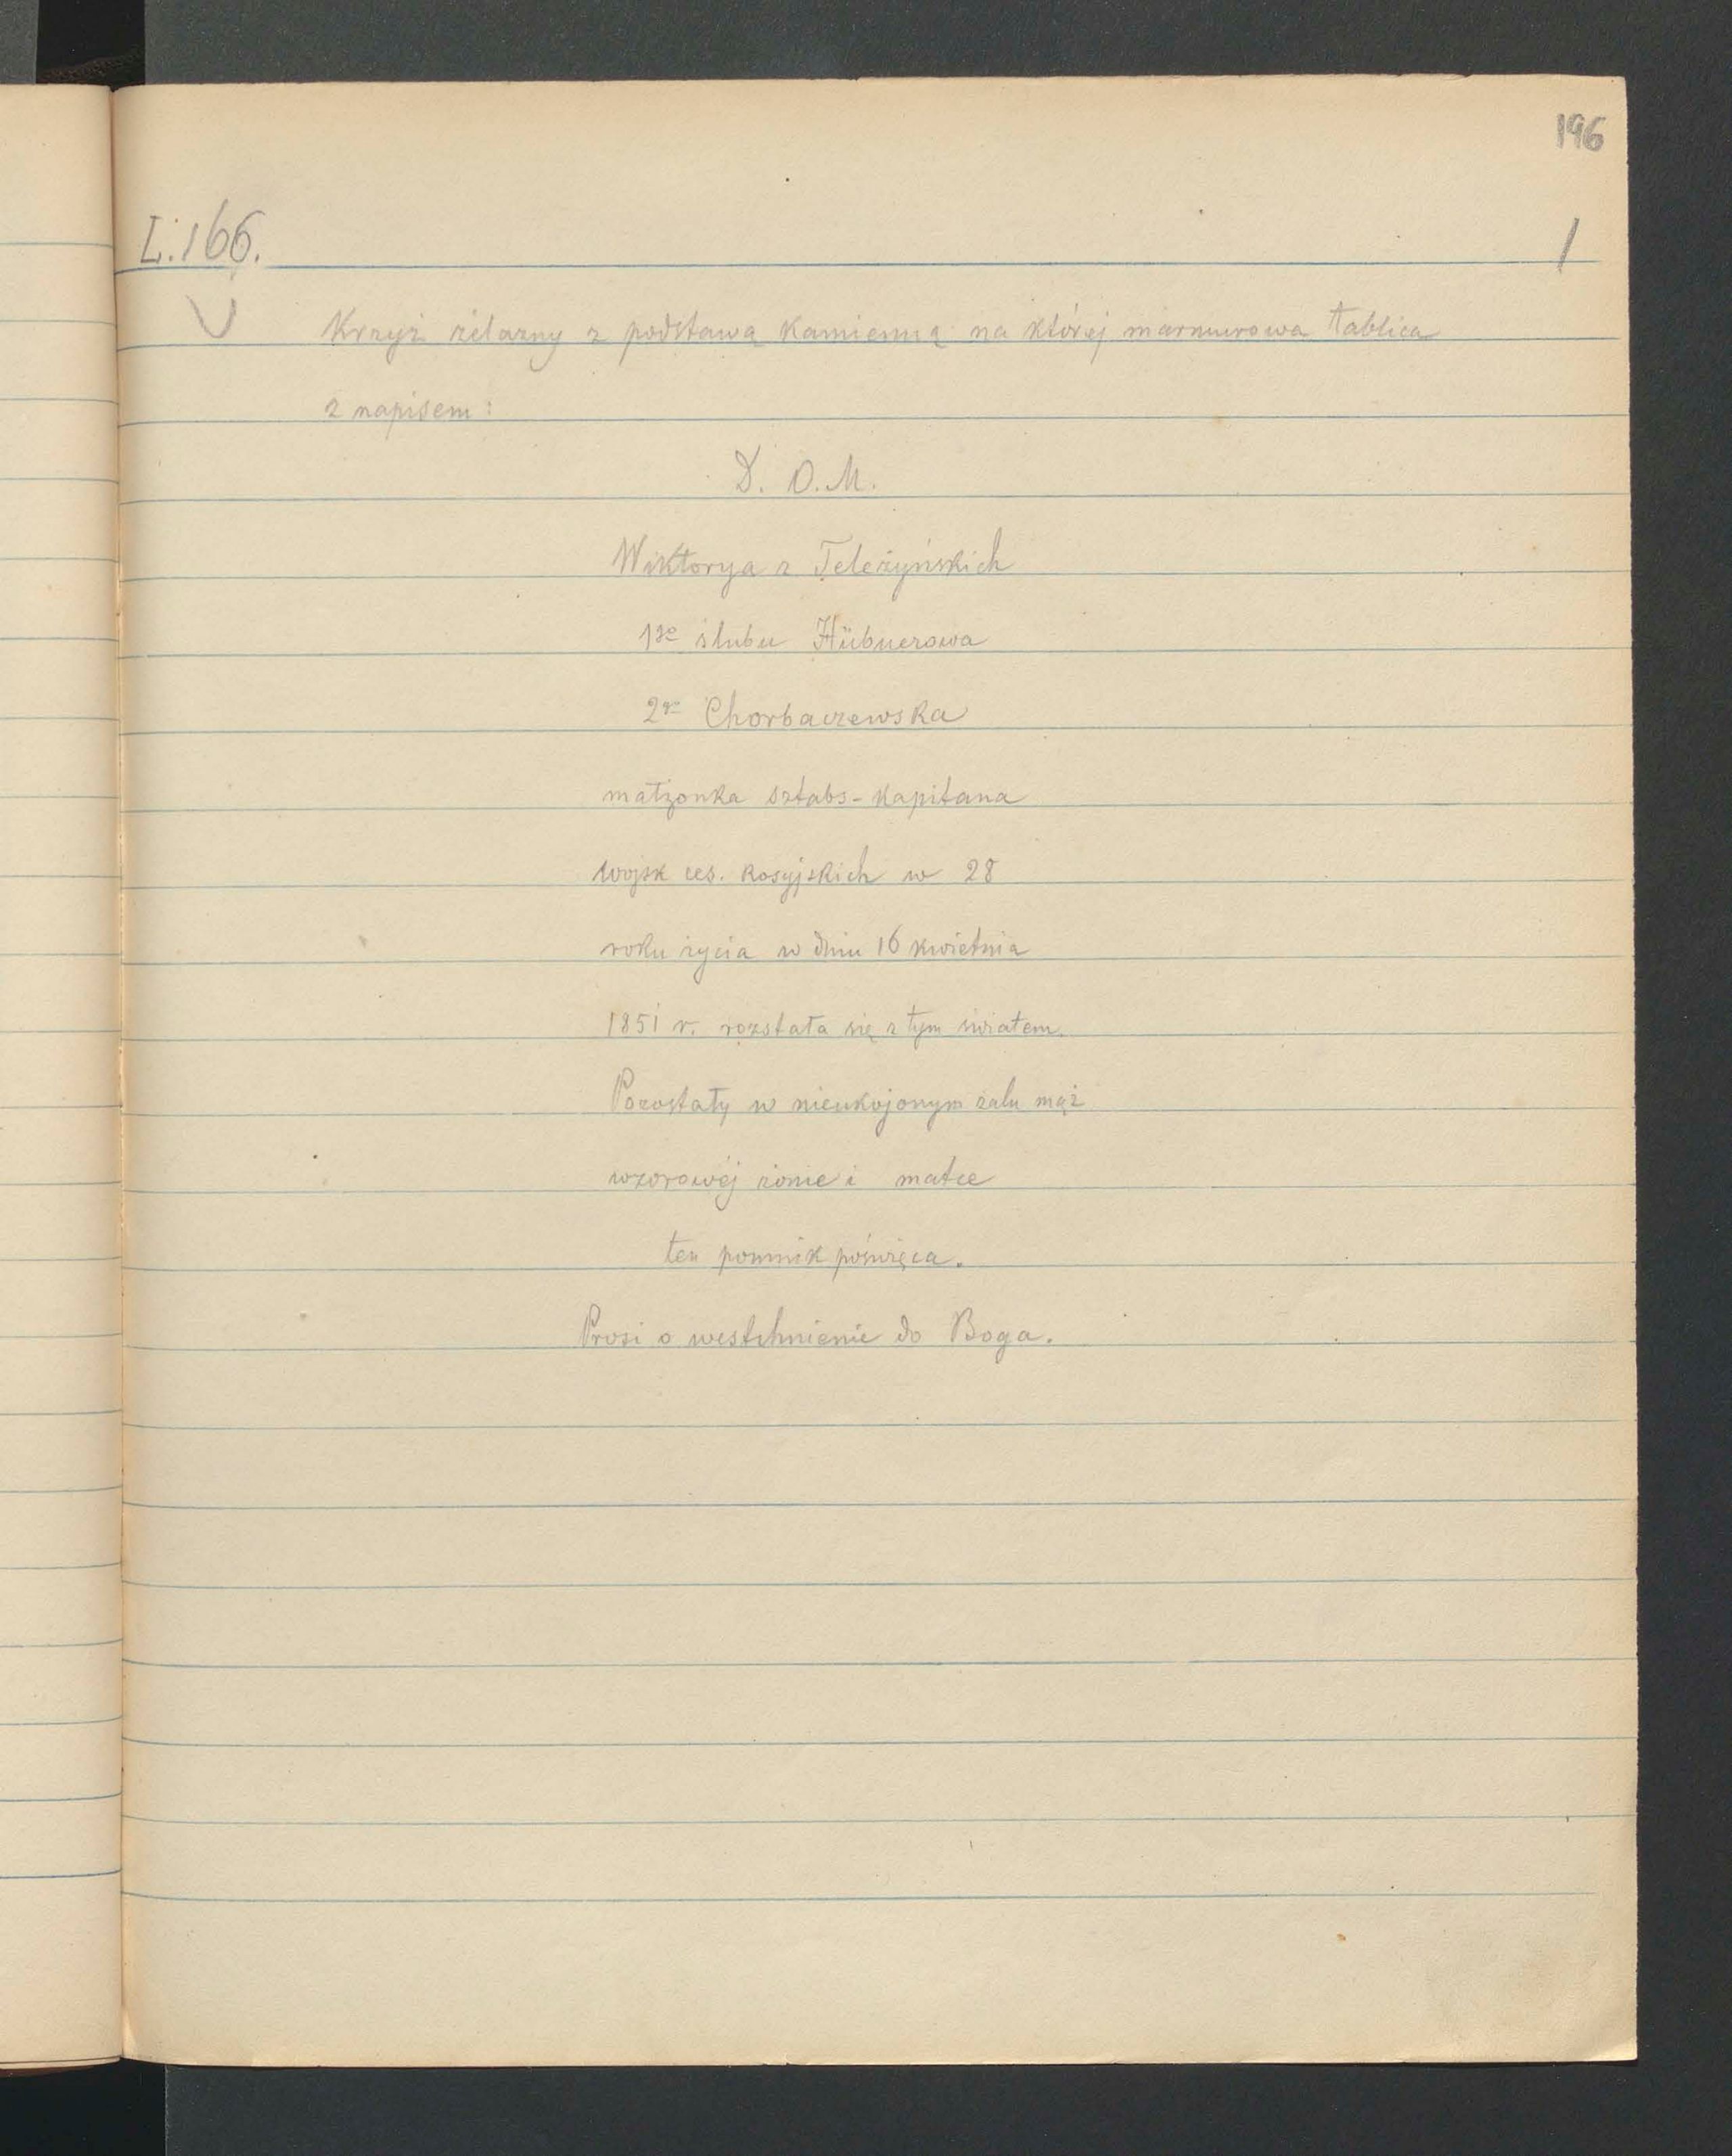 196
L. 166.
1
Krzyż żelazny z podstawą kamienną na której marmurowa tablica
z napisem:
D. O. M.
Wiktorya z Teleżyńskich
1go ślubu Hübnerowa
2go Chorbaczewska
małżonka sztabs-kapitana
wojsk ces. Rosyjskich w 28
roku życia w dniu 16 kwietnia
1851 r. rozstała się z tym światem.
Pozostały w nieukojonym żalu mąż
wzorowéj żonie i matce
ten pomnik poświęca.
Prosi o westchnienie do Boga.